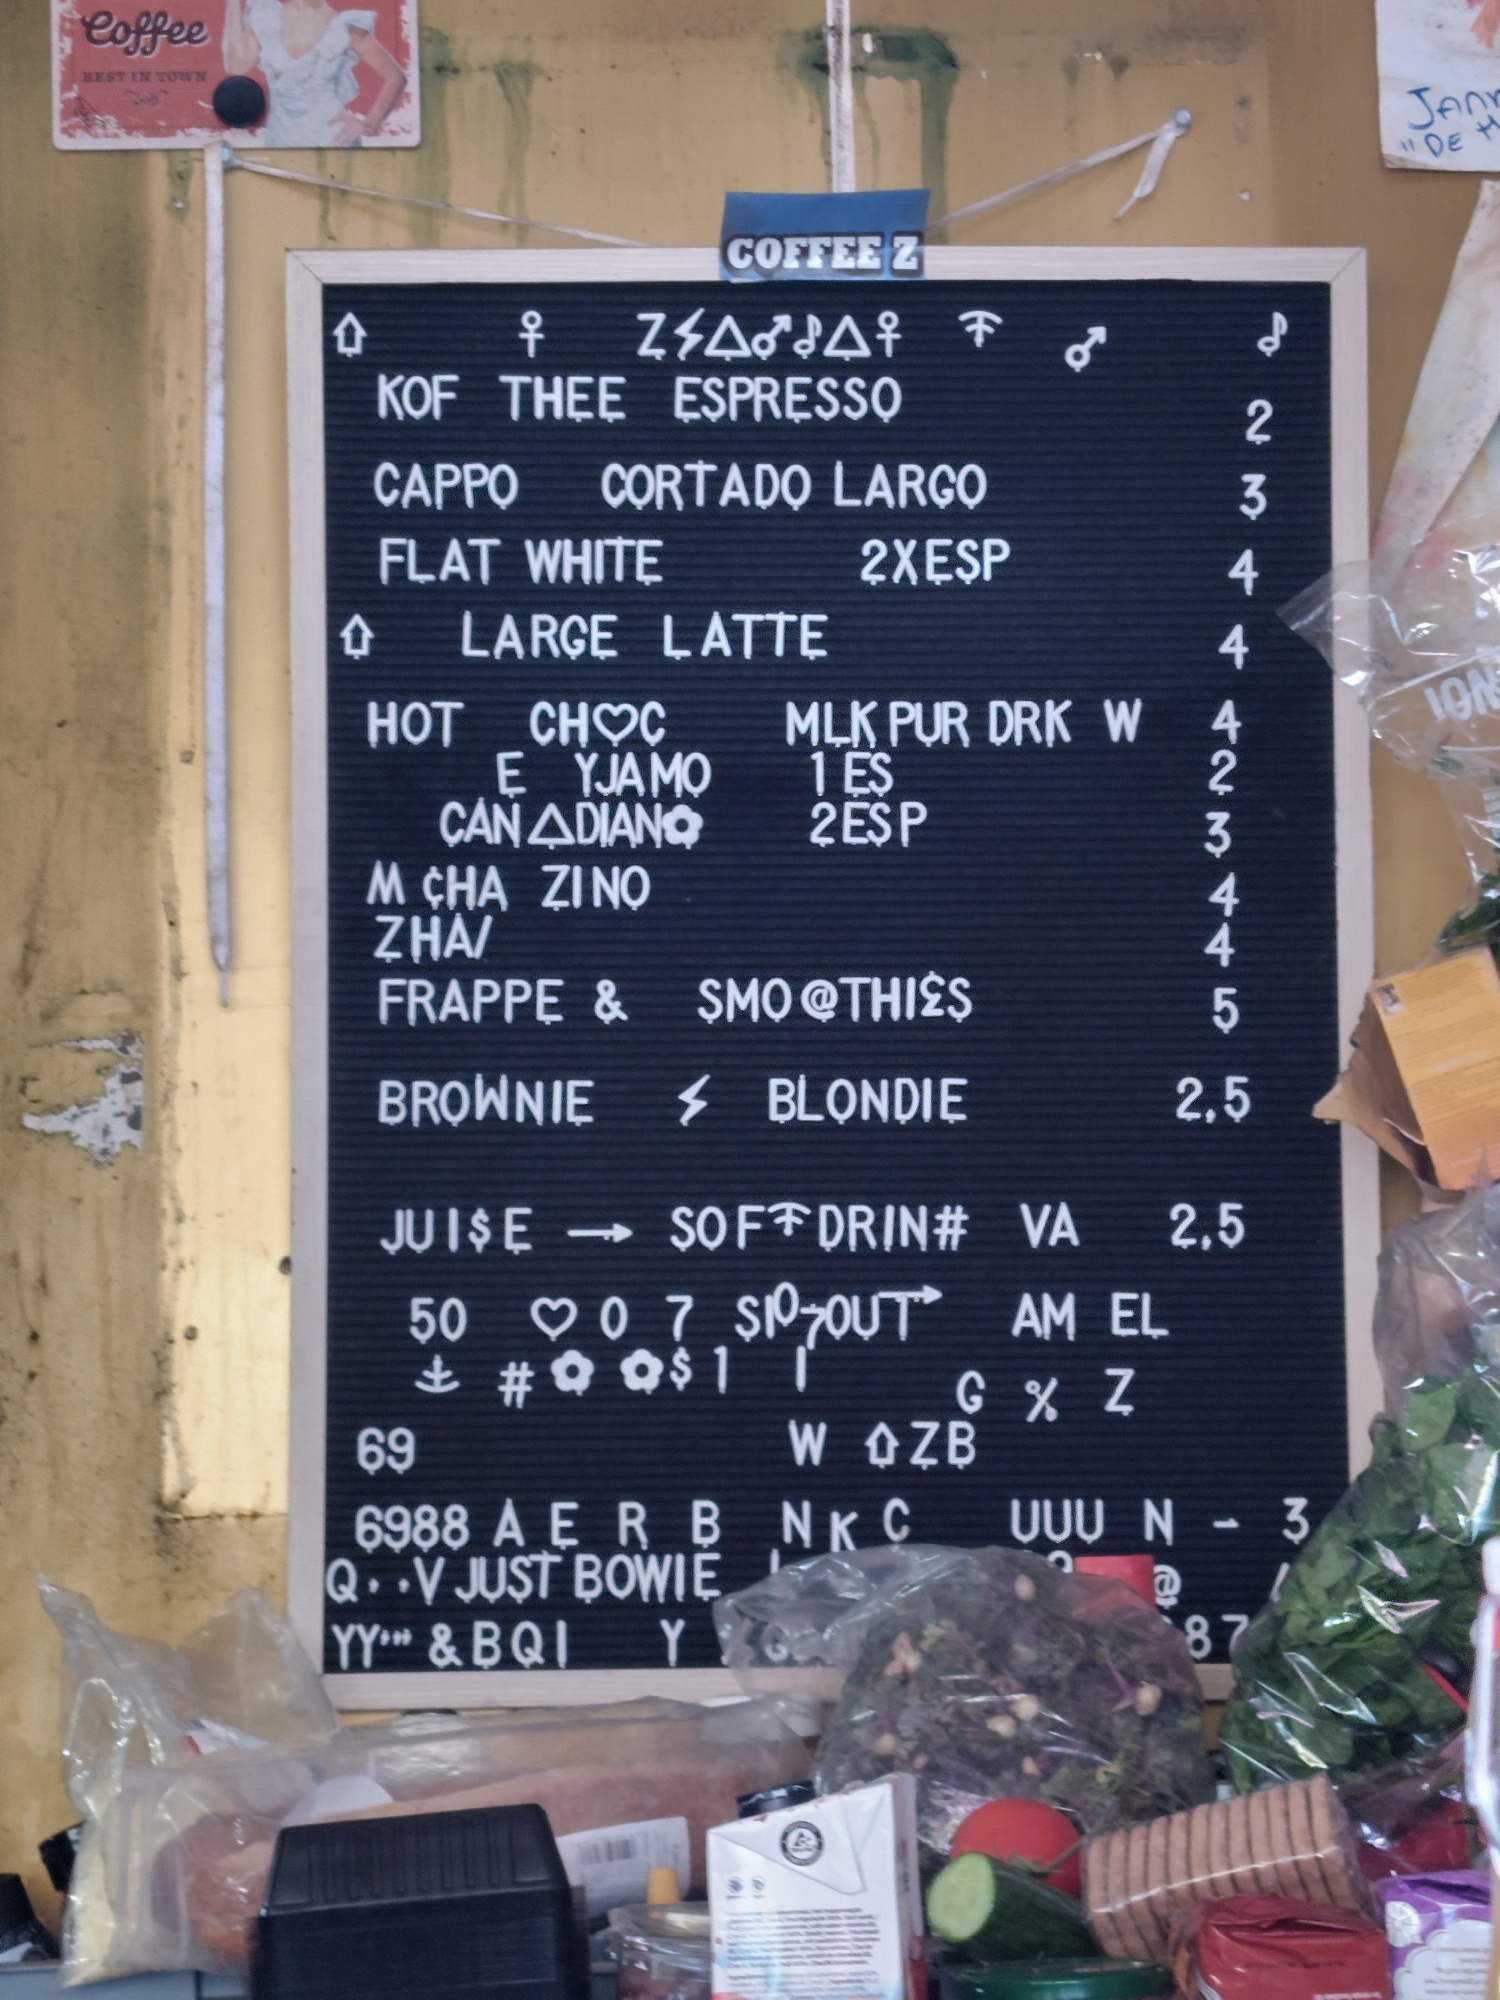 Coffee
BEST IN TOWN
JANN
"DE H
COFFEE Z
⇧ ♀ Z⚡△♂♪△♀ ♂ ♪
KOF THEE ESPRESSO 2
CAPPO CORTADO LARGO 3
FLAT WHITE 2XESP 4
⇧ LARGE LATTE 4
HOT CH♡C MLK PUR DRK W 4
E YJAMO 1 ES 2
CAN△DIAN✿ 2ESP 3
M ¢HA ZINO 4
ZHA/ 4
FRAPPE & SMO@THI£S 5
BROWNIE ⚡ BLONDIE 2,5
JUI$E → SOF DRIN# VA 2,5
50 ♡ 0 7 SI0-7OUT → AM EL
⚓ # ✿ ✿ $ 1 I
G % Z
69 W ⇧ZB
6988 A E R B N K C UUU N - 3
Q··V JUST BOWIE @
YY''' & B Q I Y 87